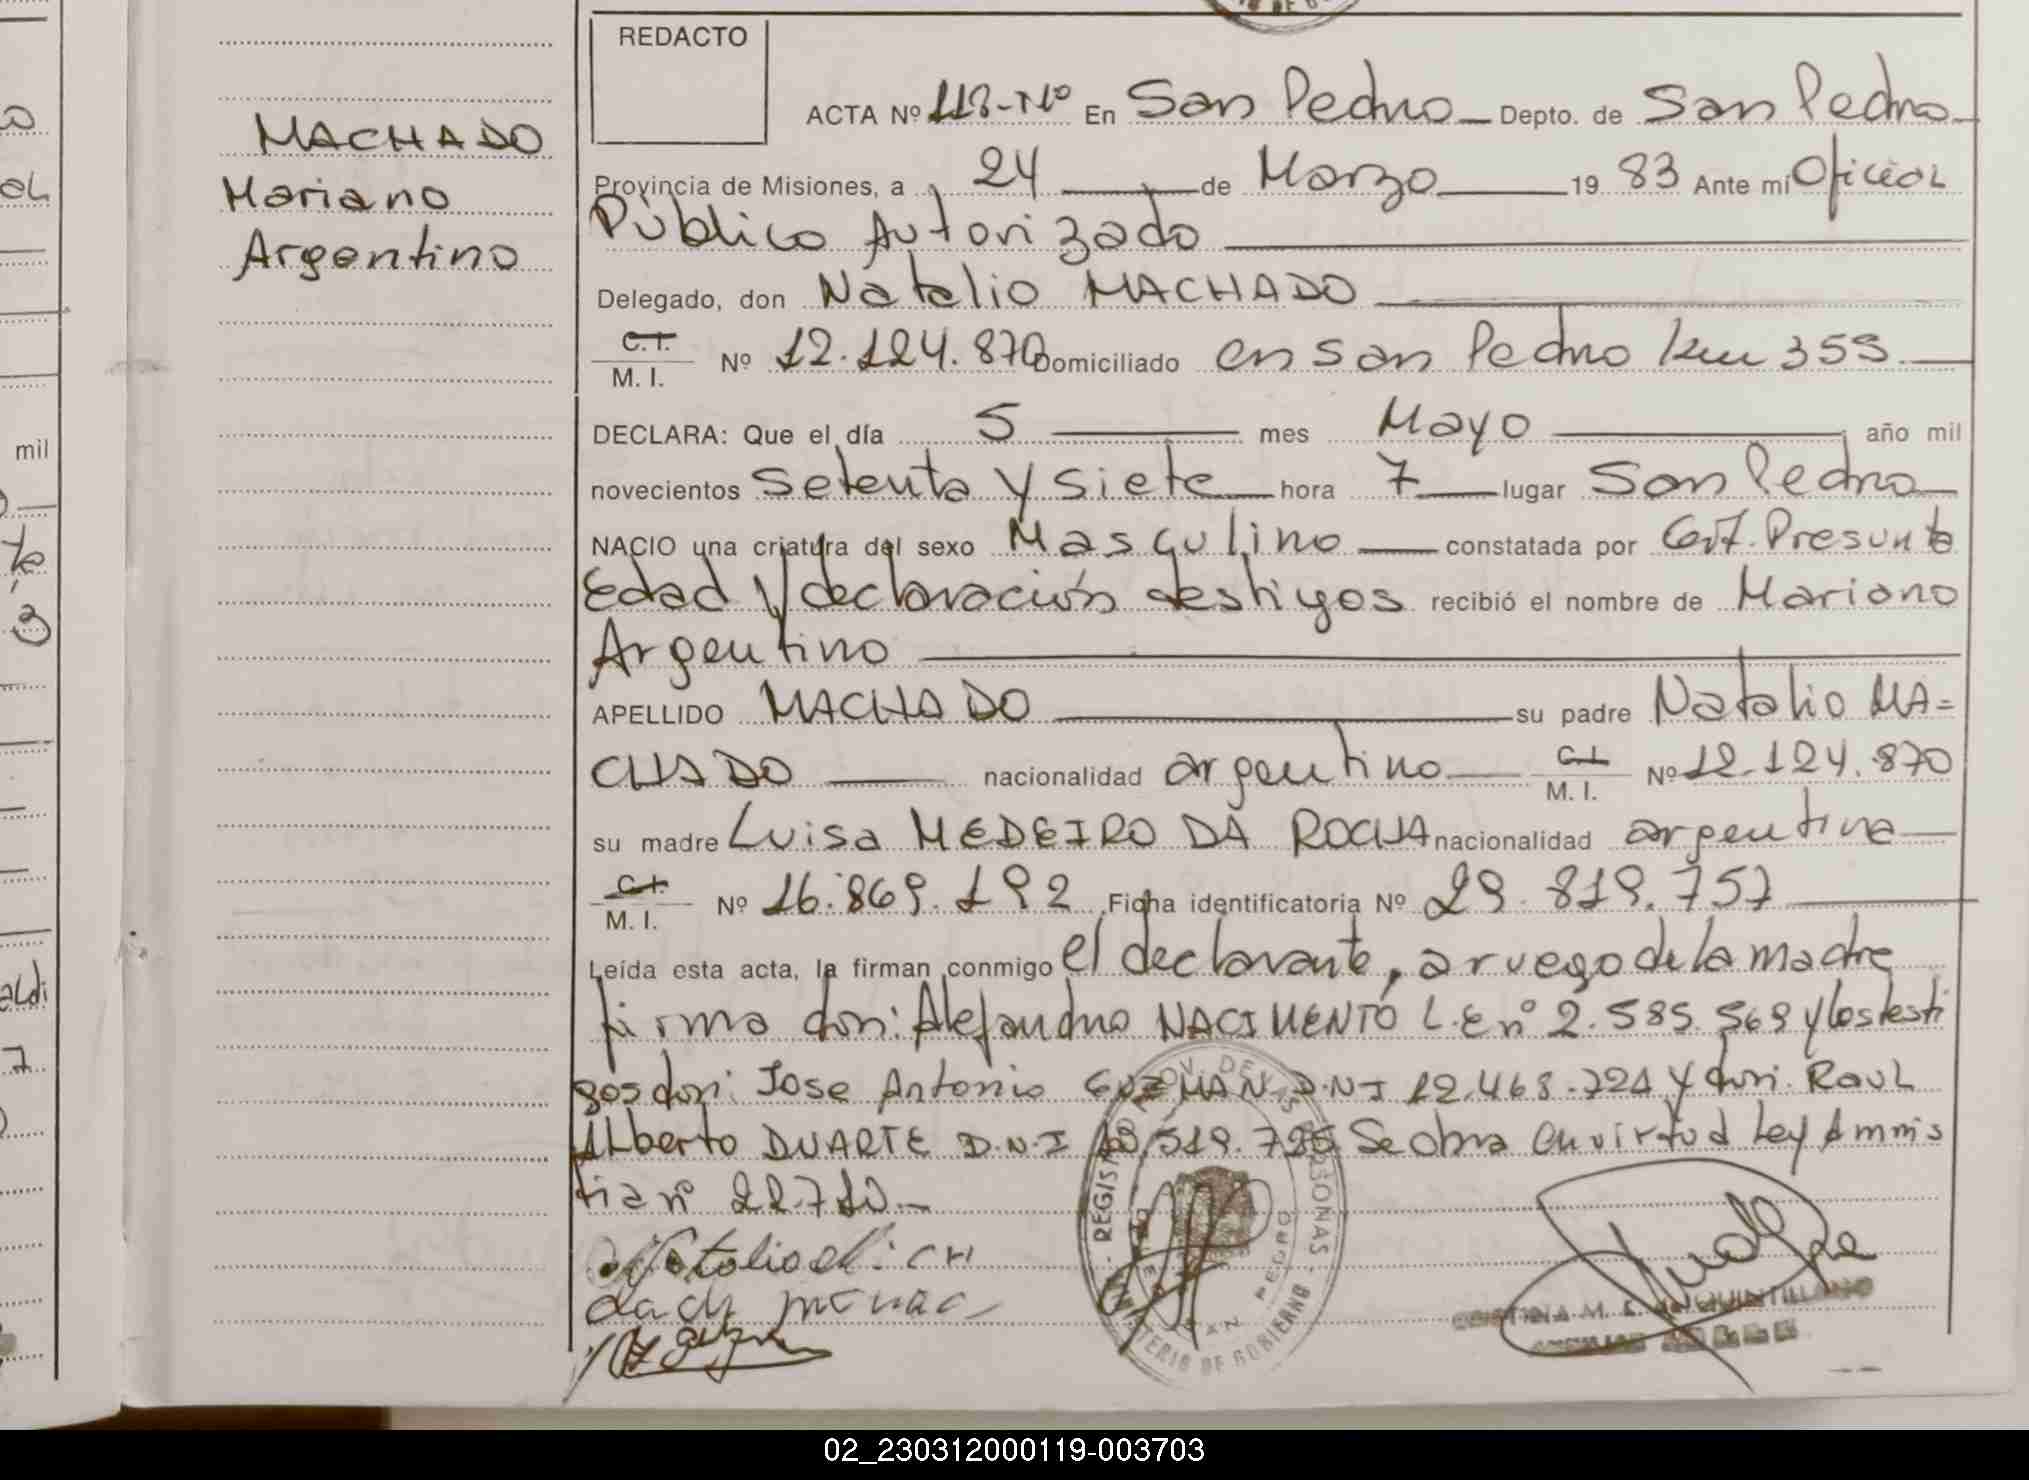 REDACTO
MACHADO
Mariano
Argentino
ACTA Nº 118-Tº En San Pedro Depto. de San Pedro
Provincia de Misiones, a 24 de Marzo 19 83 Ante mí Oficial
Público Autorizado
Delegado, don Natalio MACHADO
C.I. M. I. Nº 12.124.870 Domiciliado en San Pedro km 359.
DECLARA: Que el día 5 mes Mayo año mil
novecientos Setenta y siete hora 7 lugar San Pedro
NACIO una criatura del sexo Masculino constatada por Cert. Presunta
Edad y declaración testigos recibió el nombre de Mariano
Argentino
APELLIDO MACHADO su padre Natalio MA=
CHADO nacionalidad argentino C.I. M. I. Nº 12.124.870
su madre Luisa MEDEIRO DA ROCHA nacionalidad argentina
C.I. M. I. Nº 16.869.192 Ficha identificatoria Nº 29.819.757
Leída esta acta, la firman conmigo el declarante, a ruego de la madre
firma don: Alejandro NACIMENTO L.E nº 2.585.569 y los testi
gos don: Jose Antonio GUZMAN D.N.I 12.468.721 y don: Raul
Alberto DUARTE D.N.I 519.725 Se obra en virtud Ley Amnis
tia nº 22.710.-
REGISTRO PROV. DE LAS PERSONAS
SAN PEDRO
MINISTERIO DE GOBIERNO
CRISTINA M. E. de QUINTILLANO
mil
aldi
3
7
02_230312000119-003703